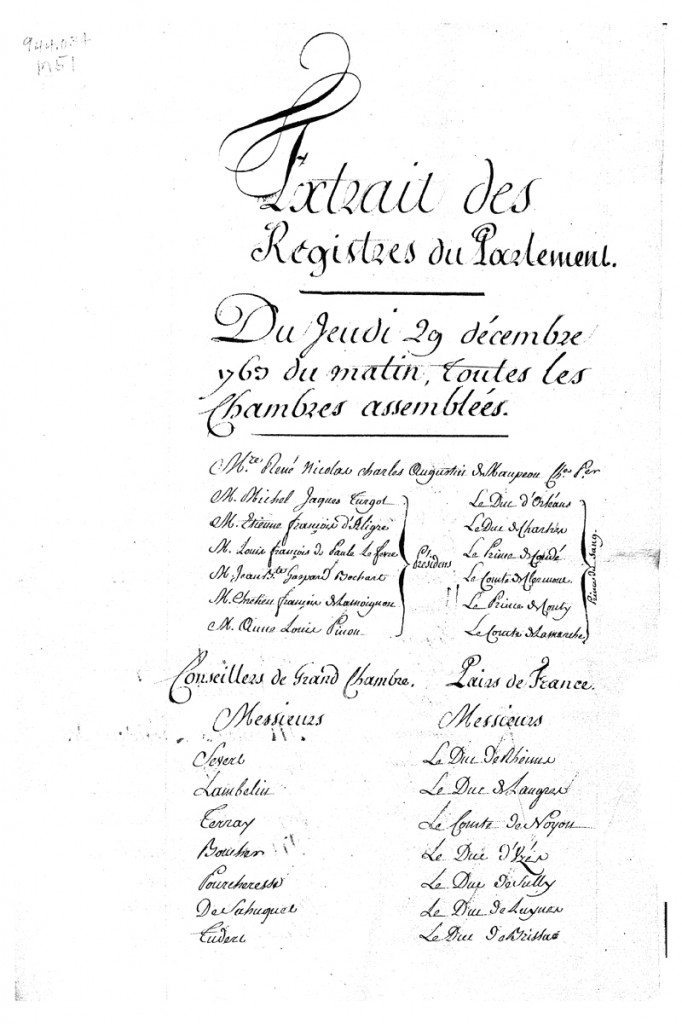 944.034
M51
Extrait des
Registres du Parlement.
Du Jeudi 29 décembre
1763 du matin, toutes les
Chambres assemblées.
M.re René Nicolas Charles Augustin de Maupeou Ch.er P.er
M. Michel Jaques Turgot
M. Etienne françois d'Aligre
M. Louis françois de Paule Le fevre
M. Jean B.te Gaspard Bochart
M. Chrétien françois de Lamoignon
M. Anne Louis Pinon
Présidens
Le Duc d'Orléans
Le Duc de Chartres
Le Prince de Condé
Le Comte de Clermont
Le Prince de Conty
Le Comte de Lamarche
Princes du Sang.
Conseillers de Grand Chambre.
Messieurs
Severt
Lambelin
Terray
Boucher
Pourcheresse
De Sahuguet
Tudert
Pairs de France.
Messieurs
Le Duc de Rheims
Le Duc de Langres
Le Comte de Noyon
Le Duc d'Uzès
Le Duc de Sully
Le Duc de Luynes
Le Duc de Brissac